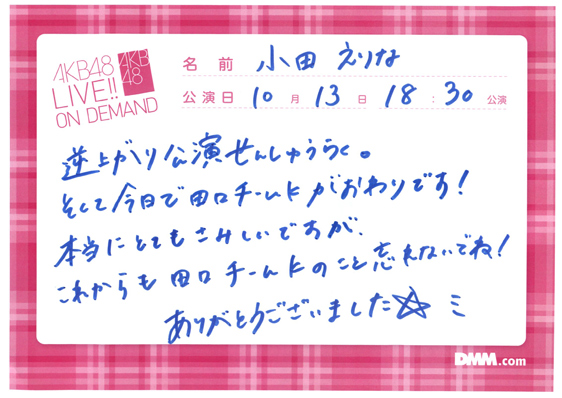 AKB48
LIVE!!
ON DEMAND
AKB
48
名前 小田えりな
公演日 10月13日 18:30公演
逆上がり公演せんしゅうらく。
そして今日で田口チームKがおわりです!
本当にとてもさみしいですが、
これからも田口チームKのこと忘れないでね!
ありがとうございました☆ミ
DMM.com